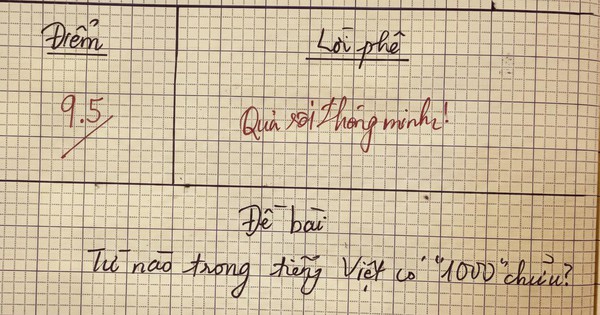 Điểm
Lời phê
9.5
Quá thông minh!
Đề bài
Từ nào trong tiếng Việt có "1000"